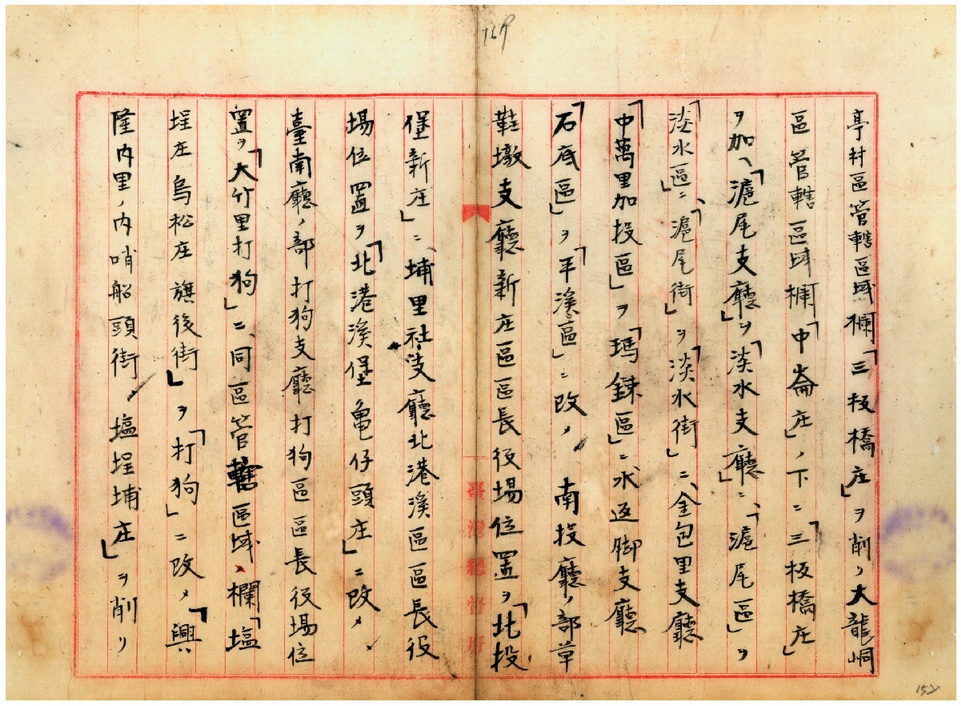 亭村區管轄區域欄「三板橋庄」ヲ削リ大龍峒
區管轄區域欄中「崙庄」ノ下ニ「三板橋庄」
ヲ加ヘ「滬尾支廳」ヲ「淡水支廳」ニ、「滬尾區」ヲ
「淡水區」ニ、「滬尾街」ヲ「淡水街」ニ、金包里支廳
「中萬里加投區」ヲ「瑪鋉區」ニ水返脚支廳
「石底區」ヲ「平溪區」ニ改メ 南投廳ノ部草
鞋墩支廳新庄區區長役場位置ヲ「北投
堡新庄」ニ、埔里社支廳北港溪區區長役
場位置ヲ「北港溪堡龜仔頭庄」ニ改メ
臺南廳ノ部打狗支廳打狗區區長役場位
置ヲ「大竹里打狗」ニ同區管轄區域欄「塩
埕庄烏松庄旗後街」ヲ「打狗」ニ改メ「興
隆內里ノ內哨船頭街 塩埕埔庄」ヲ削リ
臺灣總督府
169
152